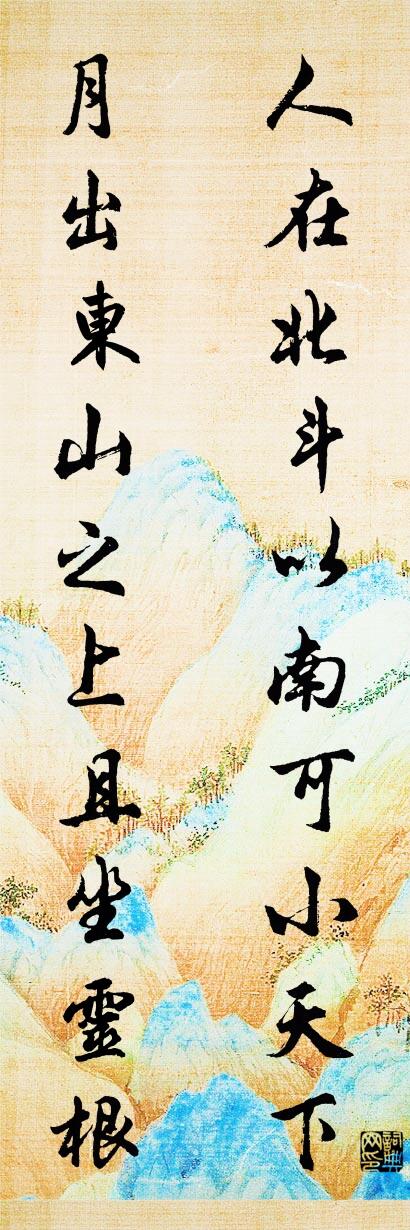 人在北斗以南可小天下
月出東山之上且坐靈根
詞典网印